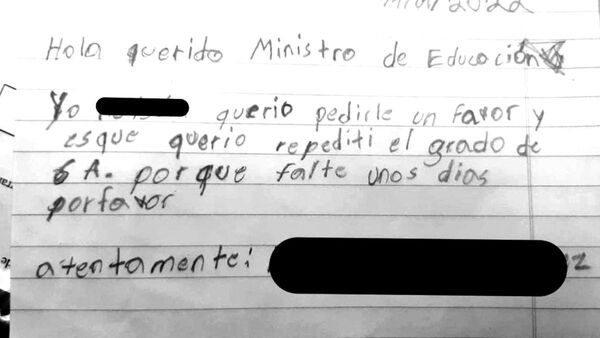 2022
Hola querido Ministro de Educación
Yo querio pedirle un favor y
es que querio repediti el grado de
6 A. porque falte unos dias
porfavor
atentamente: z